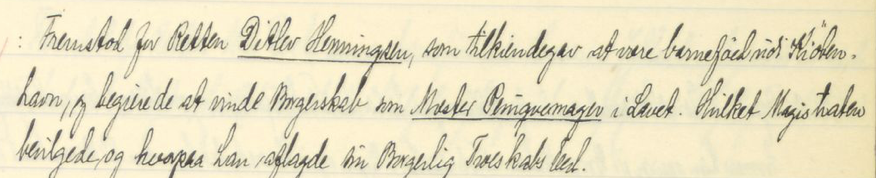 : Fremstod for Retten Ditlev Henningsen, som tilkiendegav at være barnefød udi Kiöben-
havn, og begierede at vinde Borgerskab som Mester Peruqvemager i Lavet. Hvilket Magistraten
bevilgede, og hvorpaa han aflagde sin Borgerlig Troeskabs Eed.